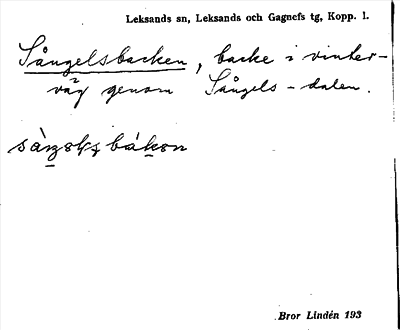 Leksands sn, Leksands och Gagnefs tg, Kopp. l.
Sångelsbacken, backe i vinter-
väg genom Sångels-dalen.
Bror Lindén 193